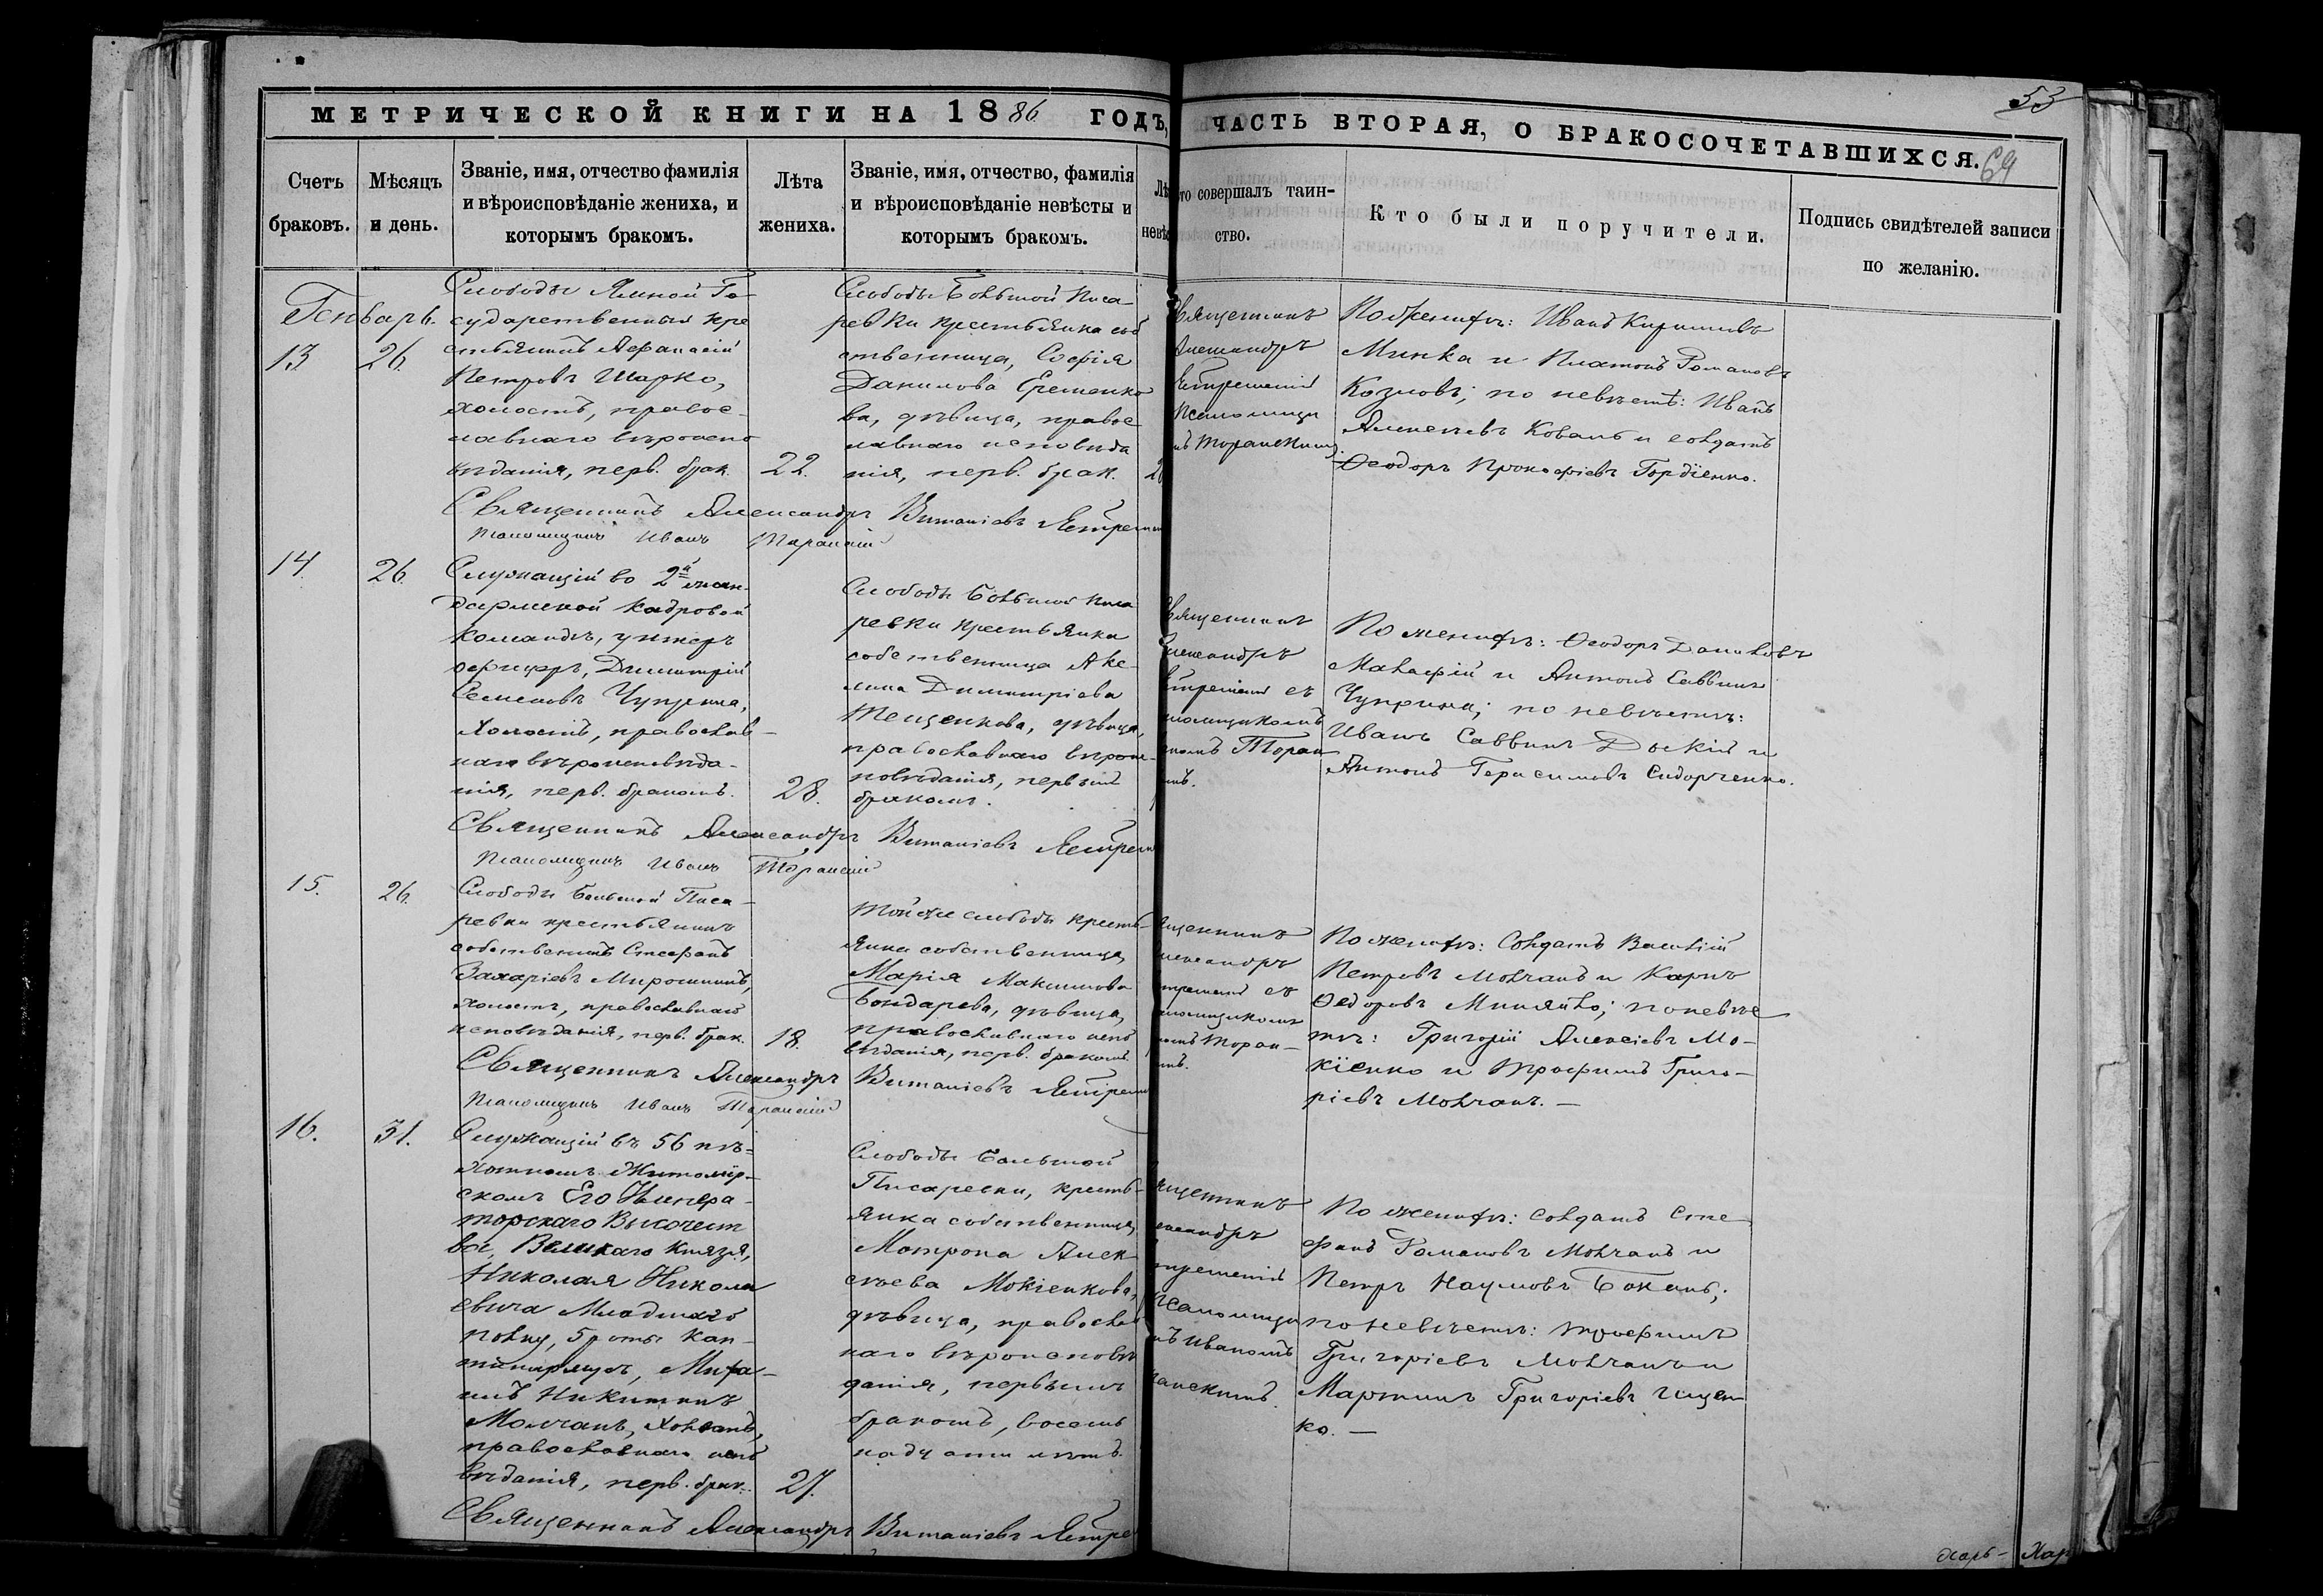 53
МЕТРИЧЕСКОЙ КНИГИ НА 1886 ГОДЪ, ЧАСТЬ ВТОРАЯ, О БРАКОСОЧЕТАВШИХСЯ.
69
Счетъ браковъ.
Мѣсяцъ и день.
Званіе, имя, отчество фамилія
и вѣроисповѣданіе жениха, и
которымъ бракомъ.
Лѣта
жениха.
Званіе, имя, отчество, фамилія
и вѣроисповѣданіе невѣсты и
которымъ бракомъ.
Лѣ
невѣс
то совершалъ таин-
ство.
Кто были поручители.
Подпись свидѣтелей записи
по желанію.
Генварь.
13
26.
Слободы Ямной Го-
сударственный кре
стьянинъ Афанасій
Петровъ Шарко,
холостъ, правос-
лавнаго вѣроиспо
вѣданія, перв. брак.
22.
Слободы Большой Писа-
ревки крестьянка соб
ственница, Софія
Данилова Ерешенко
ва, дѣвица, правос
лавнаго исповѣда
нія, перв. брак.
2
Священникъ
Александръ
Ястремскій
Псаломщи
По женихѣ: Иванъ Кириловъ
Минка и Платонъ Романовъ
Козловъ; по невѣстѣ: Иванъ
Алексѣевъ Коваль и солдатъ
Феодоръ Прокофіевъ Гордіенко.
Священникъ Александръ Виталіевъ Ястрем
Псаломщикъ Иванъ
14.
26.
Служащій во 2й жан-
дармской Кадровой
Командѣ, унтеръ
офицеръ, Димитрій
Семеновъ Чуприна,
Холостъ, православ-
наго вѣроисповѣда-
нія, перв. бракомъ.
28.
Слободы Большой Писа
ревки крестьянка
собственница Аке-
лина Димитріева
Тещенкова, дѣвица,
православнаго вѣроис-
повѣданія, первымъ
бракомъ.
Священникъ
Александръ
стремскій съ
аломщикомъ
По женихѣ: Феодоръ Даниловъ
Малафій и Антонъ Саввинъ
Чуприна; по невѣстѣ:
Иванъ Саввинъ и
Антонъ Герасимовъ Сидорченко.
Священникъ Александръ Виталіевъ Ястрем
Псаломщикъ Иванъ
15.
26.
Слободы Большой Писа-
ревки крестьянинъ
собственникъ Стефанъ
Захаріевъ Мирошникъ,
холостъ, православнаго
исповѣданія, перв. брак.
18.
Той же слободы кресть-
янка собственница
Марія Максимова
Бондарева, дѣвица,
православнаго испо
вѣданія, перв. бракомъ.
ященникъ
лександръ
стремскій съ
аломщикомъ
По женихѣ: Солдатъ Василій
Петровъ Молчанъ и Карпъ
Федоровъ Миняйло; по невѣс
тѣ: Григорій Алексіевъ Мо-
кіенко и Трофимъ Григо-
ріевъ Молчанъ. —
Священникъ Александръ Виталіевъ Ястрем
Псаломщикъ Иванъ
16.
31.
Служащій въ 56 пѣ-
хотномъ Житомір-
скомъ Его Импера-
торскаго Высочест
ва, Великаго Князя,
Николая Никола
евича Младшаго
полку, 5 роты кап-
тинармусъ, Миха-
илъ Никитинъ
Молчанъ, Холостъ,
православнаго испо
вѣданія, перв. брак.
27.
Слободы Большой
Писаревки, кресть-
янка собственница,
Мотрона Алек-
сѣева Мокіенкова,
дѣвица, православ
наго вѣроисповѣ
данія, первымъ
бракомъ, восем
надцати лѣтъ.
ященникъ
лександръ
стремскій
Псаломщи
мъ Иваномъ
По женихѣ: Солдатъ Сте-
фанъ Романовъ Молчанъ и
Петръ Наумовъ Боканъ;
по невѣстѣ: Трофимъ
Григоріевъ Молчанъ и
Мартинъ Григоріевъ Гицен-
ко. —
Священникъ Александръ Виталіевъ Ястре